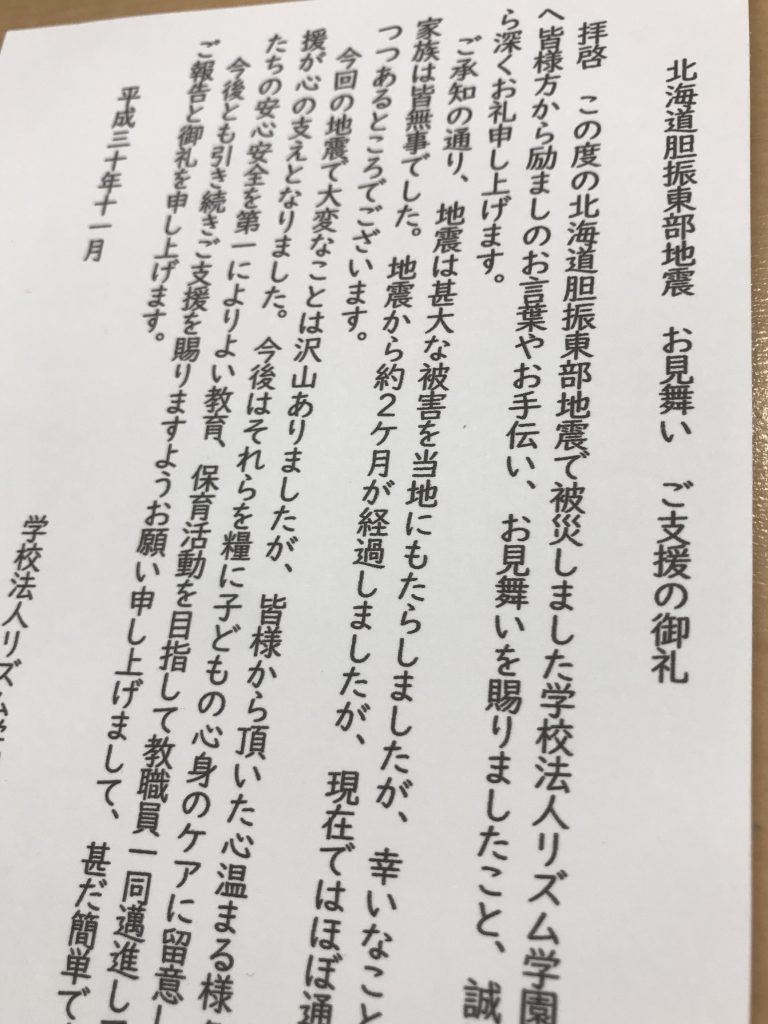 北海道胆振東部地震　お見舞い　ご支援の御礼
拝啓　この度の北海道胆振東部地震で被災しました学校法人リズム学園
へ皆様方から励ましのお言葉やお手伝い、お見舞いを賜りましたこと、誠
ら深くお礼申し上げます。
ご承知の通り、地震は甚大な被害を当地にもたらしましたが、幸いなこと
家族は皆無事でした。地震から約２ケ月が経過しましたが、現在ではほぼ通
つつあるところでございます。
今回の地震で大変なことは沢山ありましたが、皆様から頂いた心温まる様
援が心の支えとなりました。今後はそれらを糧に子どもの心身のケアに留意し
たちの安心安全を第一によりよい教育、保育活動を目指して教職員一同邁進し
今後とも引き続きご支援を賜りますようお願い申し上げまして、甚だ簡単で
ご報告と御礼を申し上げます。
平成三十年十一月
学校法人リズム